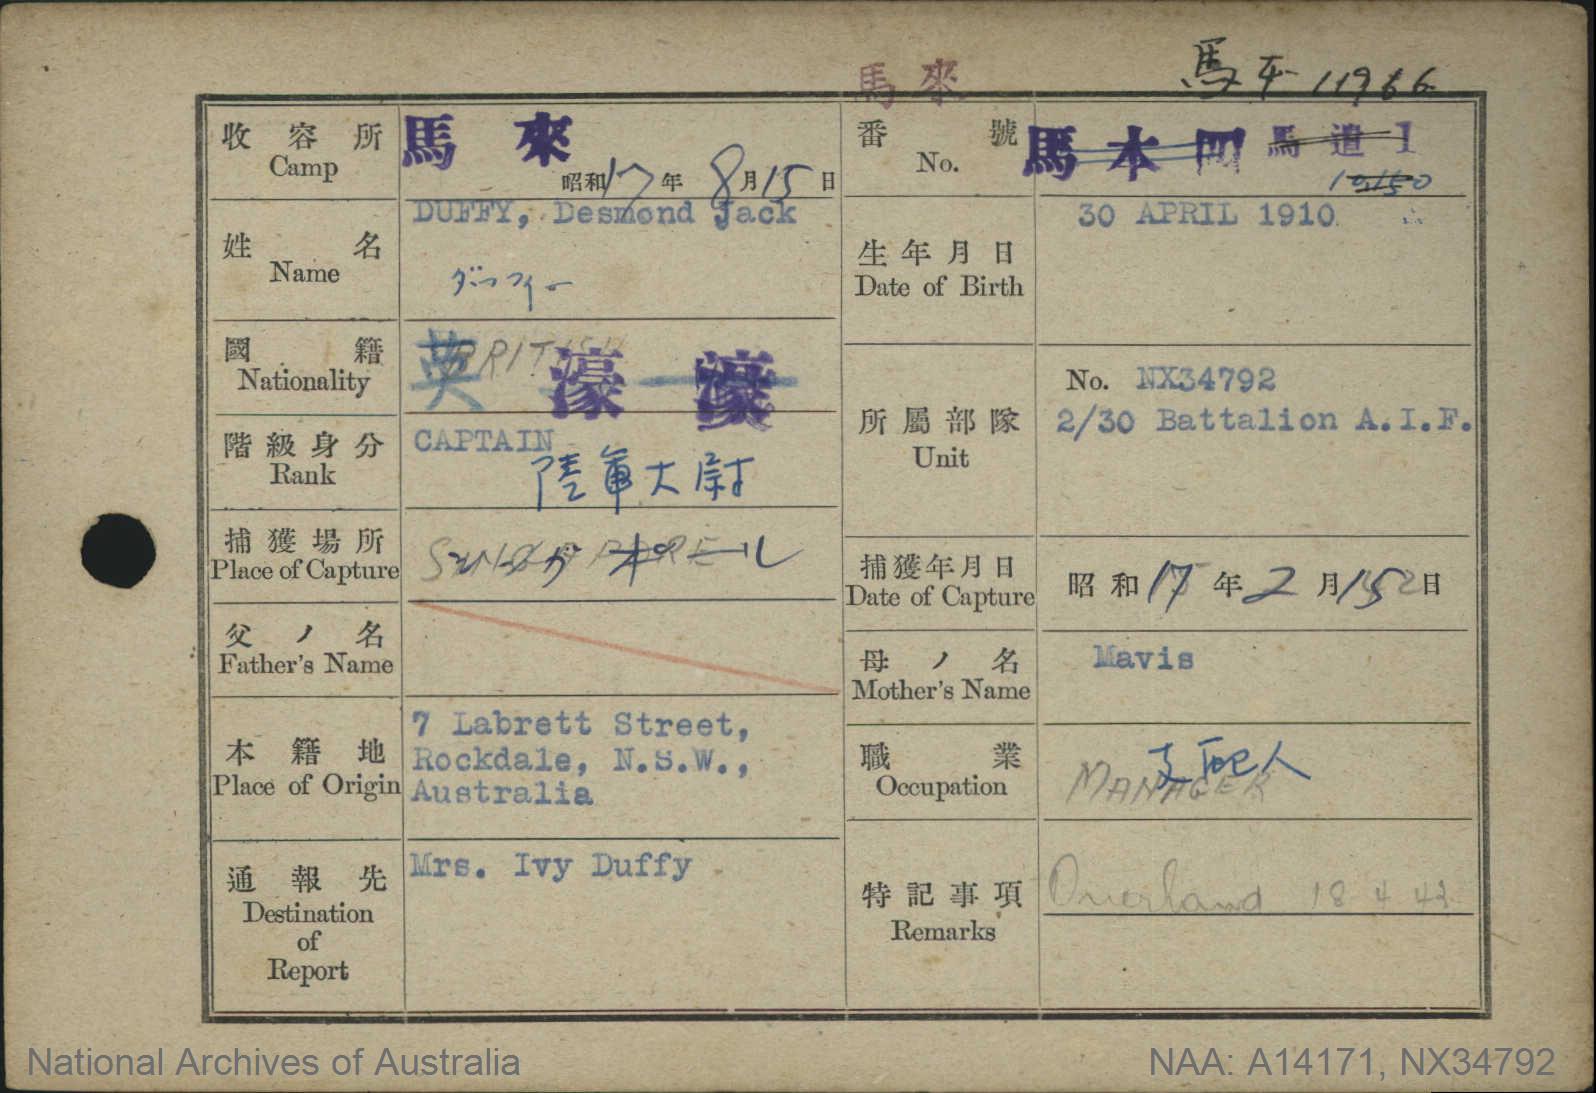 馬來
馬本 11966
收容所
Camp
馬來
昭和17年8月15日
番號
No.
馬本四 馬遣1
10150
姓名
Name
DUFFY, Desmond Jack
ダッフィー
生年月日
Date of Birth
30 APRIL 1910
國籍
Nationality
英 BRITISH 濠 濠
階級身分
Rank
CAPTAIN
陸軍大尉
所屬部隊
Unit
No. NX34792
2/30 Battalion A.I.F.
捕獲場所
Place of Capture
SINGAPORE
捕獲年月日
Date of Capture
昭和17年2月15日
父ノ名
Father's Name
母ノ名
Mother's Name
Mavis
本籍地
Place of Origin
7 Labrett Street,
Rockdale, N.S.W.,
Australia
職業
Occupation
支配人
MANAGER
通報先
Destination
of
Report
Mrs. Ivy Duffy
特記事項
Remarks
Overland 18 4 43
National Archives of Australia
NAA: A14171, NX34792